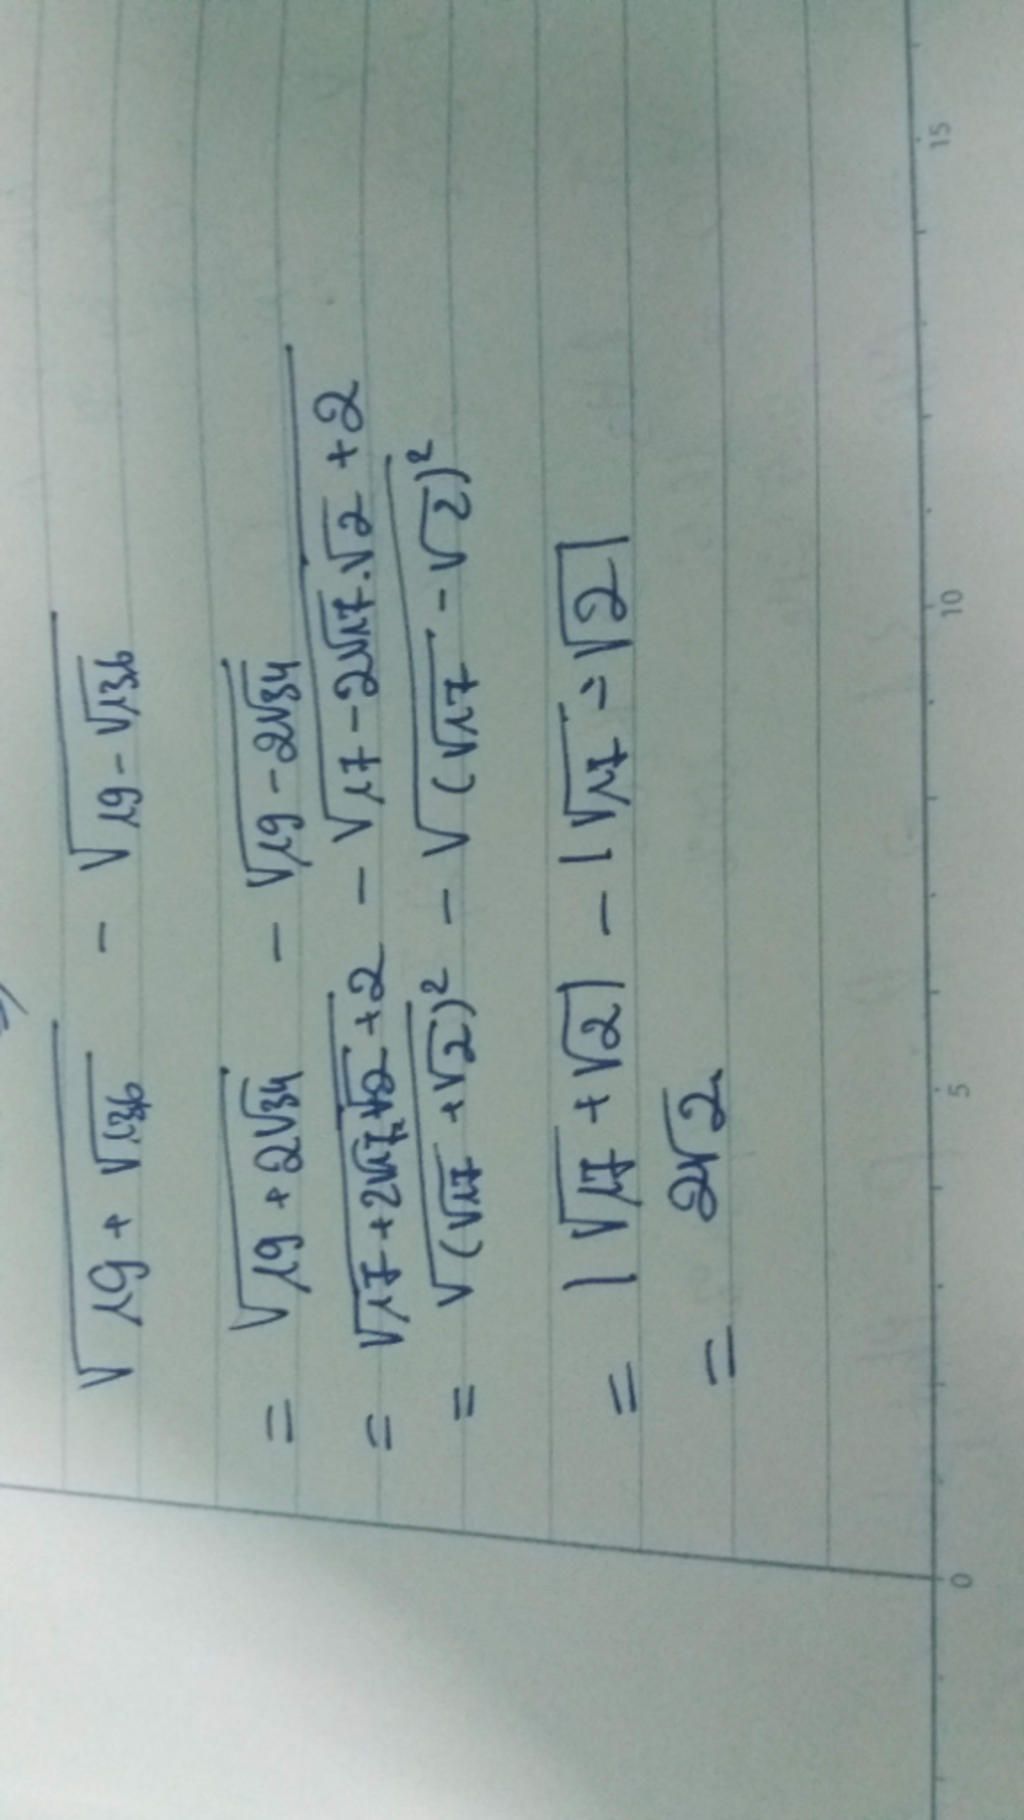 √(19 + √136) - √(19 - √136)
= √(19 + 2√34) - √(19 - 2√34)
= √(17 + 2√17 √2 + 2) - √(17 - 2√17.√2 + 2)
= √(√17 + √2)² - √(√17 - √2)²
= |√17 + √2| - |√17 - √2|
= 2√2
0 5 10 15